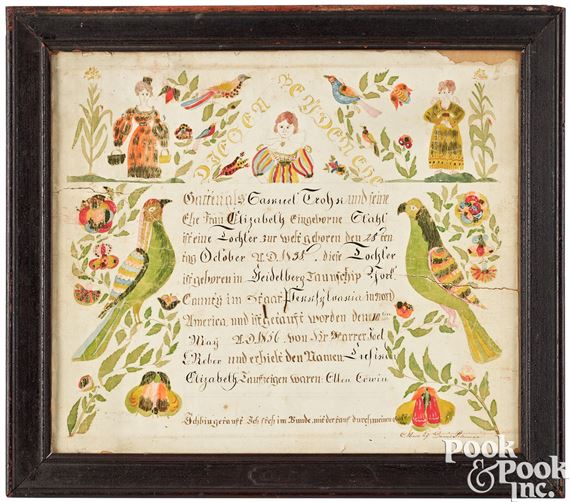 DIESEN BEYDEN EHE
Gatten als Samuel Trohn und seine
Ehe Frau Elizabeth Eingeborne Stahl
ist eine Tochter zur welt geboren den 28 ten
tag October A.D. diese Tochter
ist geboren in Heidelberg Taunschip York
County im Staat Pennsylvania in nord
America und ist getauft worden den
May A.D. von Hr Pfarrer Joel
L Reber und erhielt den Namen
Elizabeth Taufzeigen waren: Ellen Erwin
Ich bin getauft Ich steh im Bunde, mit der tauf durch meinen
Pook
& Pook
Inc.